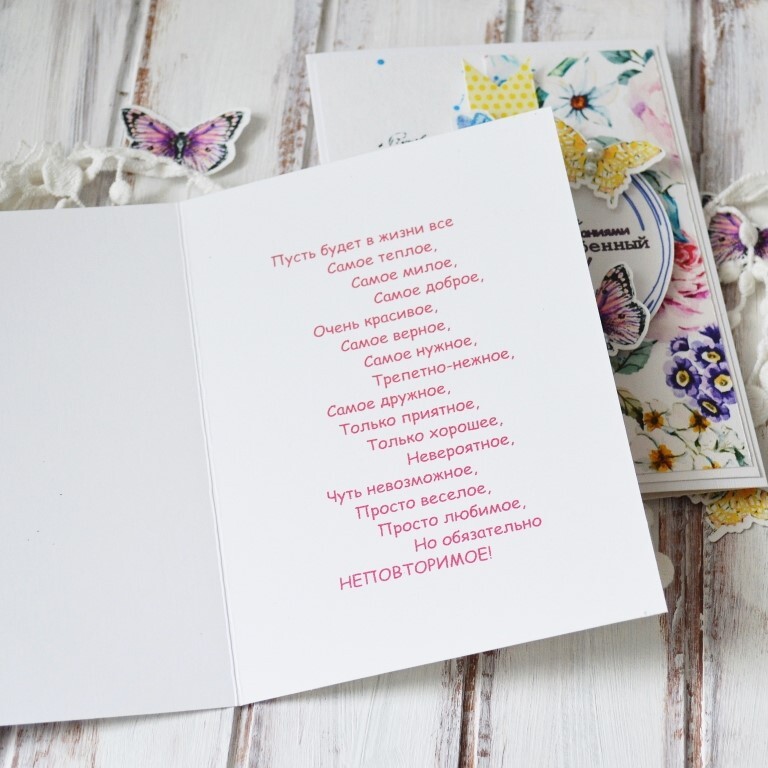 Пусть будет в жизни все
Самое теплое,
Самое милое,
Самое доброе,
Очень красивое,
Самое верное,
Самое нужное,
Трепетно-нежное,
Самое дружное,
Только приятное,
Только хорошее,
Невероятное,
Чуть невозможное,
Просто веселое,
Просто любимое,
Но обязательно
НЕПОВТОРИМОЕ!